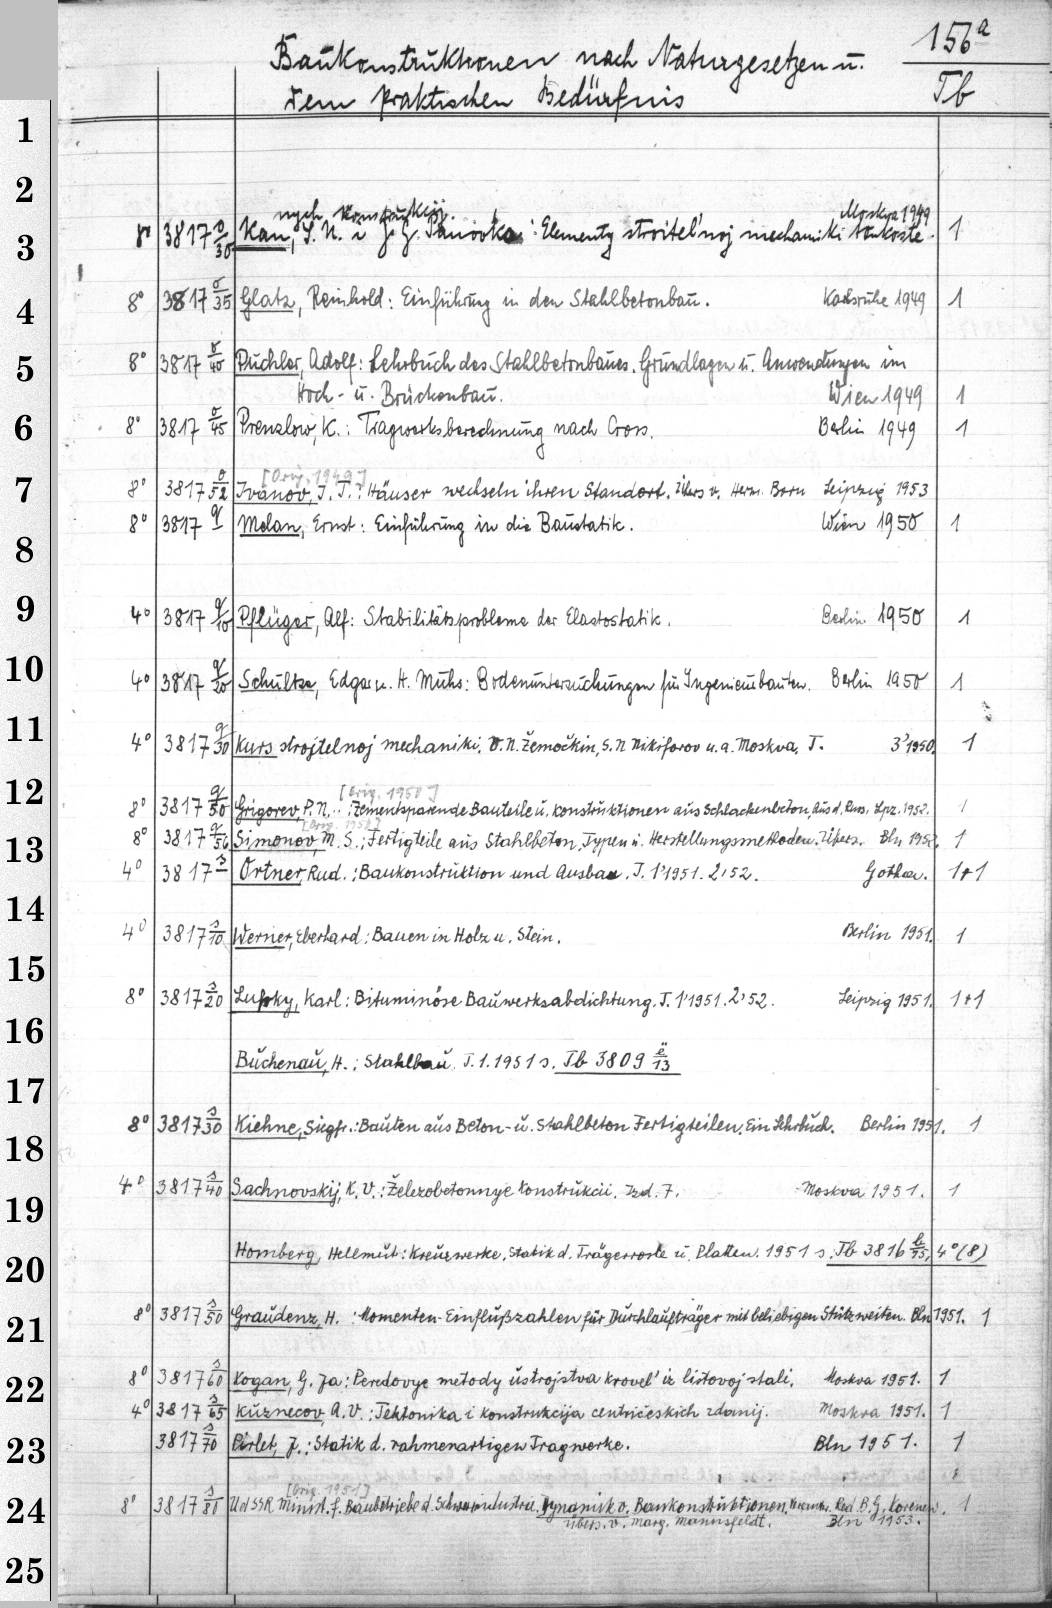 156a
Tb
Baukonstruktionen nach Naturgesetzen u.
dem praktischen Bedürfnis
1
2
nych konstrukcij. Moskva 1949
3 8° 3817 o/30 Kan, S.N. i J. G. Panovko: Elementy stroitel'noj mechaniki tonkoste- 1
4 8° 3817 o/35 Glatz, Reinhold: Einführung in den Stahlbetonbau. Karlsruhe 1949 1
5 8° 3817 o/40 Puchler, Adolf: Lehrbuch des Stahlbetonbaues. Grundlagen u. Anwendungen im
Hoch- u. Brückenbau. Wien 1949 1
6 8° 3817 o/45 Prenzlow, K.: Tragwerksberechnung nach Cross. Berlin 1949 1
[Orig. 1949]
7 8° 3817 o/52 Ivanov, I. T.: Häuser wechseln ihren Standort. Übers v. Herm. Born Leipzig 1953
8° 3817 q Melan, Ernst: Einführung in die Baustatik. Wien 1950 1
8
9 4° 3817 q/10 Pflüger, Alf: Stabilitätsprobleme der Elastostatik. Berlin 1950 1
10 4° 3817 q/20 Schultze, Edgar u. H. Muhs: Bodenuntersuchungen für Ingenieurbauten. Berlin 1950 1
11 4° 3817 q/30 Kurs strojtelnoj mechaniki. V. N. Žemočkin, S. N Nikiforov u. a. Moskva, T. 3'1950. 1
[Orig. 1950]
12 8° 3817 q/50 Grigorev, P. N..: Zementsparende Bauteile u. Konstruktionen aus Schlackenbeton, Aus d. Russ. Lpz. 1952. 1
13 8° 3817 q/56 Simonov, M. S.: Fertigteile aus Stahlbeton, Typen u. Herstellungsmethoden. Übers. Bln 1952. 1
4° 3817 s Ortner, Rud.: Baukonstruktion und Ausbau. T. 1'1951. 2'52. Gotha. 1+1
14 4° 3817 s/10 Werner, Eberhard: Bauen in Holz u. Stein. Berlin 1951. 1
15
8° 3817 s/20 Lufsky, Karl: Bituminöse Bauwerksabdichtung. T. 1'1951. 2'52. Leipzig 1951. 1+1
16
Buchenau, H.: Stahlbau. T. 1. 1951 s. Tb 3809 ë/13
17
8° 3817 s/30 Kiehne, Siegfr.: Bauten aus Beton- u. Stahlbeton Fertigteilen. Ein Lehrbuch. Berlin 1951. 1
18
4° 3817 s/40 Sachnovskij, K. V.: Železobetonnye Konstrukcii. Izd. 7. Moskva 1951. 1
19
Homberg, Hellmut: Kreuzwerke. Statik d. Trägerroste u. Platten. 1951 s. Tb 3816 b/95, 4° (8)
20
21 8° 3817 s/50 Graudenz, H.: Momenten-Einflußzahlen für Durchlaufträger mit beliebigen Stützweiten. Bln 1951. 1
22 8° 3817 s/60 Kogan, G. Ja: Peredovye metody ustrojstva krovel' iz listovoj stali. Moskva 1951. 1
4° 3817 s/65 Kuznecov, A. V.: Tektonika i konstrukcija centričeskich zdanij. Moskva 1951. 1
23 3817 s/70 Pirlet, J.: Statik d. rahmenartigen Tragwerke. Bln 1951. 1
[Orig. 1951]
24 8° 3817 s/81 UdSSR. Minist. f. Baubetriebe d. Schwerindustrie. Dynamik v. Baukonstruktionen. Red. B. G. Korenev. 1
Übers. v. Marg. Mannsfeldt. Bln 1953.
25